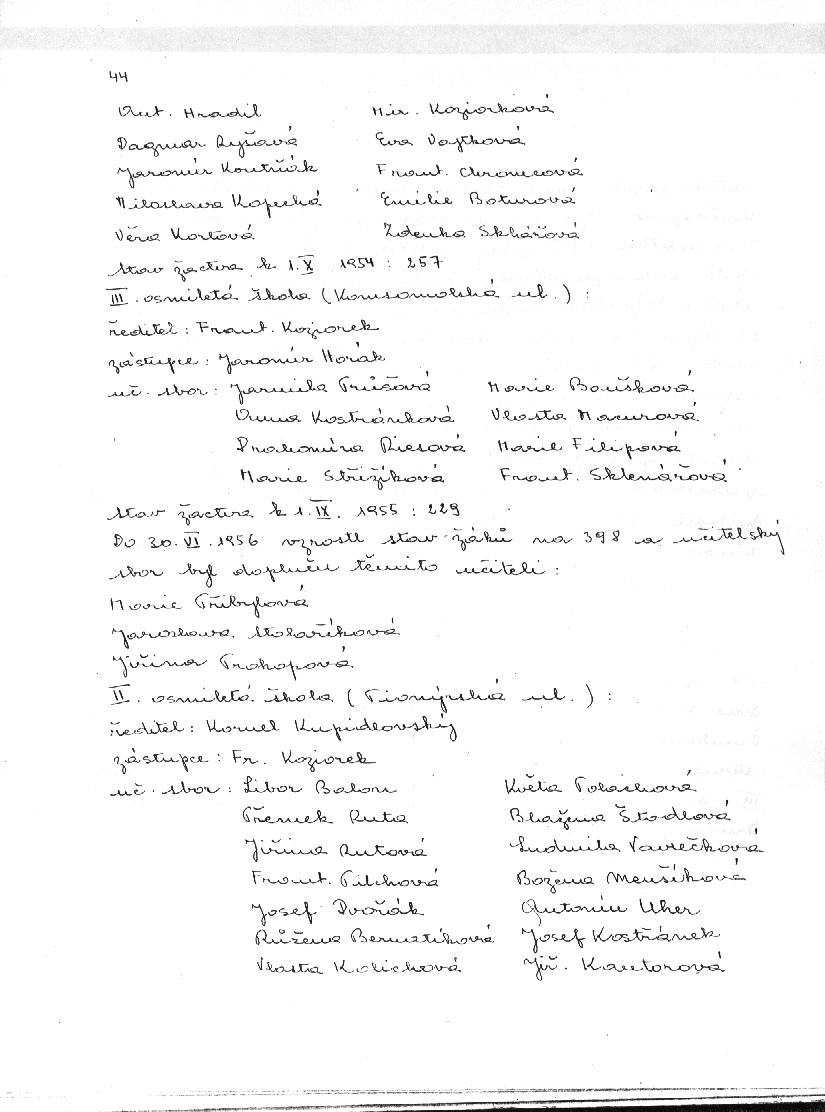 44
Ant. Hradil Mir. Koziorková
Dagmar Ryšavá Eva Vojtková
Jaromír Koutňák Frant. Chromcová
Miloslava Kopecká Emilie Boturová
Věra Kortová Zdenka Sklářová
Stav žactva k 1.X 1954 : 257
III. osmiletá škola (Komsomolská ul.) :
ředitel : Frant. Koziorek
zástupce : Jaromír Horák
uč. sbor : Jarmila Průšová Marie Boušková
Anna Kostránková Vlasta Macurová
Drahomíra Riesová Marie Filipová
Marie Střižíková Frant. Sklenářová
Stav žactva k 1.IX. 1955 : 229
Do 30.VI.1956 vzrostl stav žáků na 398 a učitelský
sbor byl doplněn těmito učiteli :
Marie Přibylová
Jaroslava Stolaříková
Jiřina Prokopová
II. osmiletá škola (Pionýrská ul.) :
ředitel : Kornel Kupidlovský
zástupce : Fr. Koziorek
uč. sbor : Libor Balon Květa Polachová
Přemek Ruta Blažena Štodlová
Jiřina Rutová Ludmila Vavrečková
Frant. Pilchová Božena Menšíková
Josef Dvořák Antonín Uher
Růžena Bernatíková Josef Kostránek
Vlasta Kolichová Jiř. Kantorová